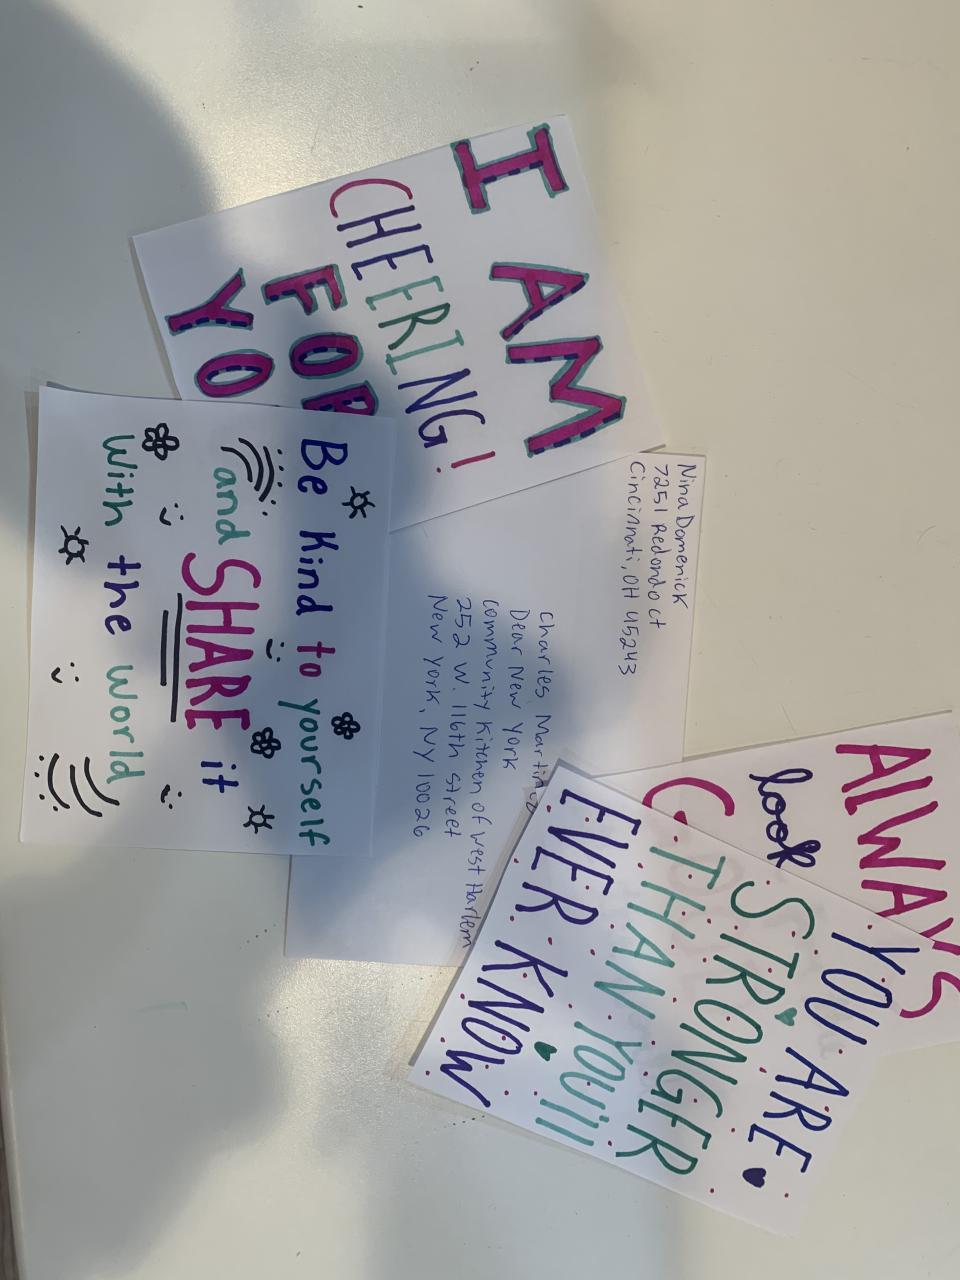 I AM
CHEERING!
FOR
YO
Be Kind to yourself
and SHARE it
With the world
Nina Domenick
7251 Redondo ct
Cincinnati, OH 45243
Charles Martin
Dear New York
Community Kitchen of West Harlem
252 W. 116th Street
New York, NY 10026
AlWAYS
look
YOU ARE
STRONGER
THAN YOU'll
EVER KNOW